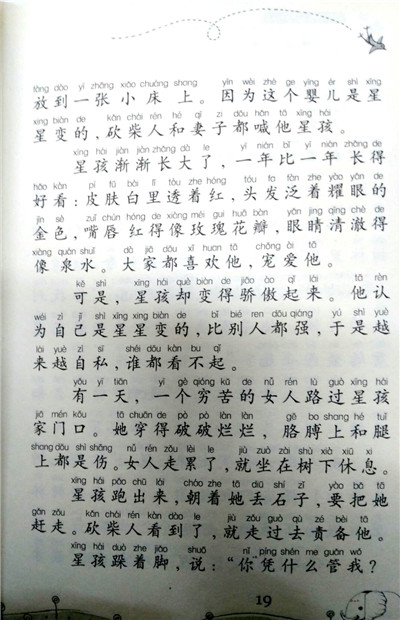 fàng dào yì zhāng xiǎo chuáng shang yīn wèi zhè ge yīng ér shì xīng
放到一张小床上。因为这个婴儿是星
xing biàn de kǎn chái rén hé qī zi dōu hǎn tā xīng hái
星变的,砍柴人和妻子都喊他星孩。
xīng hái jiàn jiàn zhǎng dà le yì nián bǐ yì nián zhǎng de
星孩渐渐长大了,一年比一年长得
hǎo kàn pí fū bái lǐ tòu zhe hóng tóu fa fàn zhe yào yǎn de
好看:皮肤白里透着红,头发泛着耀眼的
jīn sè zuǐ chún hóng de xiàng méi gui huā bàn yǎn jing qīng chè de
金色,嘴唇红得像玫瑰花瓣,眼睛清澈得
xiàng quán shuǐ dà jiā dōu xǐ huan tā chǒng ài tā
像泉水。大家都喜欢他,宠爱他。
kě shì xīng hái què biàn de jiāo ào qǐ lái tā rèn
可是,星孩却变得骄傲起来。他认
wéi zì jǐ shì xīng xing biàn de bǐ bié ren dōu qiáng yú shì yuè
为自己是星星变的,比别人都强,于是越
lái yuè zì sī shéi dōu kàn bu qǐ
来越自私,谁都看不起。
yǒu yì tiān yí gè qióng kǔ de nǚ rén lù guò xīng hái
有一天,一个穷苦的女人路过星孩
jiā mén kǒu tā chuān de pò pò làn làn gē bo shang hé tuǐ
家门口。她穿得破破烂烂,胳膊上和腿
shang dōu shì shāng nǚ rén zǒu lèi le jiù zuò zài shù xià xiū xi
上都是伤。女人走累了,就坐在树下休息。
xīng hái pǎo chū lái cháo zhe tā diū shí zǐ yào bǎ tā
星孩跑出来,朝着她丢石子,要把她
gǎn zǒu kǎn chái rén kàn dào le jiù zǒu guò qù zé bèi tā
赶走。砍柴人看到了,就走过去责备他。
xīng hái duò zhe jiǎo shuō nǐ píng shén me guǎn wǒ
星孩跺着脚,说:“你凭什么管我?
19